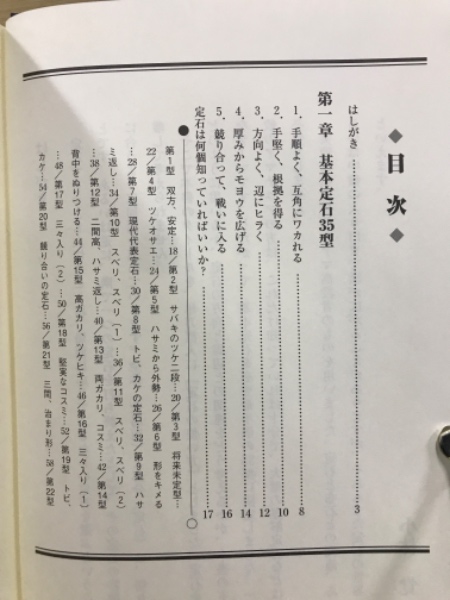 ◆目次◆
はしがき…………3
第一章 基本定石35型
1．手順よく、互角にワカれる…………8
2．手堅く、根拠を得る…………10
3．方向よく、辺にヒラく…………12
4．厚みからモヨウを広げる…………14
5．競り合って、戦いに入る…………16
定石は何個知っていればいいか？…………17
第1型 双方、安定…18／第2型 サバキのツケ二段…20／第3型 将来未定型…
22／第4型 ツケオサエ…24／第5型 ハサミから外勢…26／第6型 形をキメる
…28／第7型 現代代表定石…30／第8型 トビ、カケの定石…32／第9型 ハサ
ミ返し…34／第10型 スベリ、スベリ（1）…36／第11型 スベリ、スベリ（2）
…38／第12型 二間高、ハサミ返し…40／第13型 両ガカリ、コスミ…42／第14型
背中をぬりつける…44／第15型 高ガカリ、ツケヒキ…46／第16型 三々入り（1）
…48／第17型 三々入り（2）…50／第18型 堅実なコスミ…52／第19型 トビ、
カケ…54／第20型 競り合いの定石…56／第21型 三間、治まり形…58／第22型